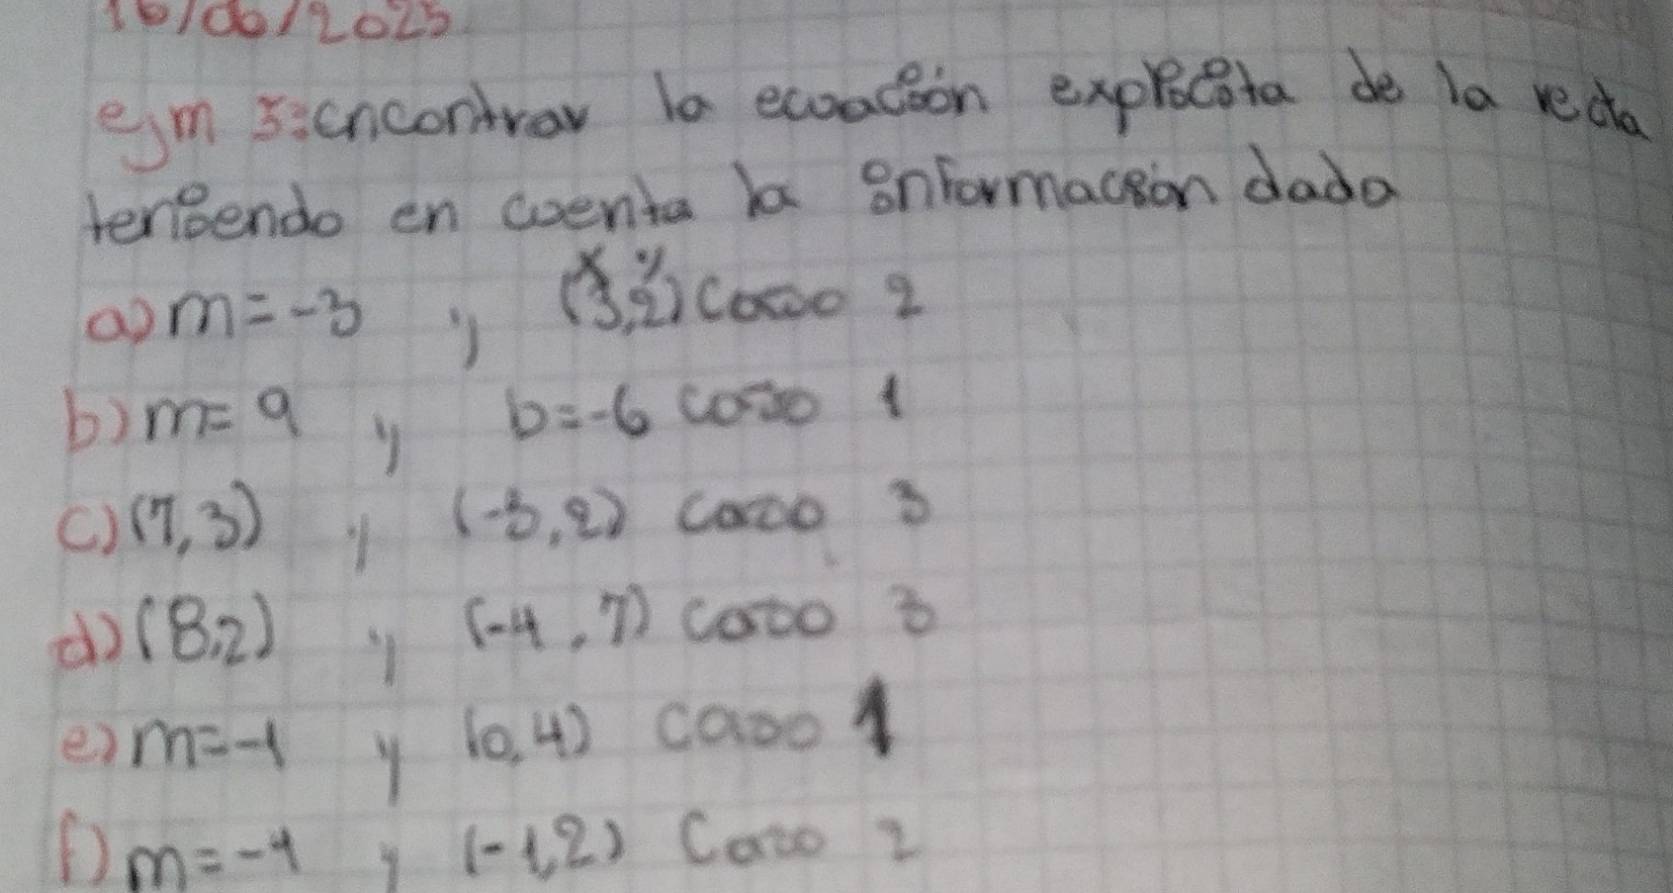 16/06/2025
ejm 3: encontrar la ecuación explicita de la recta
teniendo en cuenta la información dada
x y
a) m=-3 y (3,2) caso 2
b) m=9 y b=-6 caso 1
c) (7,3) y (-3,2) caso 3
d) (8,2) y (-4,7) caso 3
e) m=-1 y (0,4) caso 1
f) m=-4 y (-1,2) Caso 2